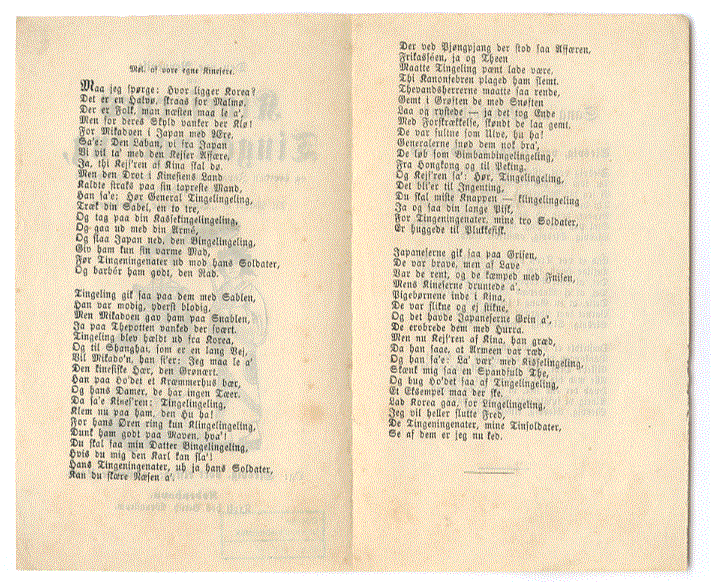 Mel. af vore egne Kinesere.
Maa jeg spørge: Hvor ligger Korea?
Det er en Halvø, straas for Malmø.
Der er Folk, man næsten maa le a',
Men for deres Skyld vanker der Klø!
For Mikadoen i Japan med Ære,
Sa'e: Den Laban, u' fra Japan
Vi vil ta' med den Kejser Affære,
Ja, thi Kejs'ren af Kina skal dø.
Men den Drot i Kinesiens Land
Kaldte straks paa sin tapreste Mand,
Han sa'e: Hør General Tingelingeling,
Træk din Sabel, en to tre,
Og tag paa din Kasseingelingeling,
Og gaa ud med din Armé,
Og slaa Japan ned, den Bingelingeling,
Giv ham kun sin varme Mad,
Før Tingeningenater ud mod hans Soldater,
Og barbér ham godt, den Rad.

Tingeling gik saa paa dem med Sablen,
Han var modig, yderst blodig,
Men Mikadoen gav ham paa Snablen,
Ja paa Thepotten vanked der svært.
Tingeling blev hældt ud fra Korea,
Og til Shanghai, som er en lang Vej,
Vil Mikado'n, han si'er: Jeg maa le a'
Den kinesiske Hær, den Grønært.
Han paa Ho'det et Kræmmerhus bær,
Og hans Damer, de har ingen Tæer.
Da sa'e Kines'ren: Tingelingeling,
Klem nu paa ham, den Hu ha!
For hans Øren ring kun Klingelingeling,
Dunk ham godt paa Maven, hva'!
Du skal faa min Datter Bingelingeling,
Hvis du mig den Karl kan sla'!
Hans Tingeningenater, uh ja hans Soldater,
Kan du skære Næsen a'.

Der ved Pjøngpjang der stod saa Affæren,
Frikasséen, ja og Theen
Maatte Tingeling pænt lade være,
Thi Kanonfebren plaged ham slemt.
Thevandsherrerne maatte saa rende,
Gemt i Grøften de med Snøften
Laa og rystede — ja det tog Ende
Med Forstrækkelse, skøndt de laa gemt.
De var sultne som Ulve, hu ha!
Generalerne stod dem nok bra',
De løb som Bimbambingelingeling,
Fra Hongkong og til Peking.
Og Kejs'ren sa': Hør, Tingelingeling,
Det bli'er til Ingenting,
Du skal miste Knappen — klingelingeling
Ja og saa din lange Pisk,
For Tingeningenater, mine tro Soldater,
Er huggede til Plukkefisk.

Japaneserne gik saa paa Grisen,
De var brave, men af Lave
Var de rent, og de kæmped med Fnisen,
Mens Kineserne druntede a'.
Pigebørnene inde i Kina,
De var flinke og ej stikne,
Og det havde Japaneserne Grin a',
De erobrede dem med Hurra.
Men nu Kejs'ren af Kina, han græd,
Da han saae, at Armeen var ræd,
Og han sa'e: La' vær' med Kisselingeling,
Skænk mig saa en Spandfuld The,
Og hug Ho'det saa af Tingelingeling,
Et Eksempel maa der ske.
Lad Korea gaa, for Lingelingeling,
Jeg vil heller slutte Fred,
De Tingeningenater, mine Tinsoldater,
Se af dem er jeg nu ked.